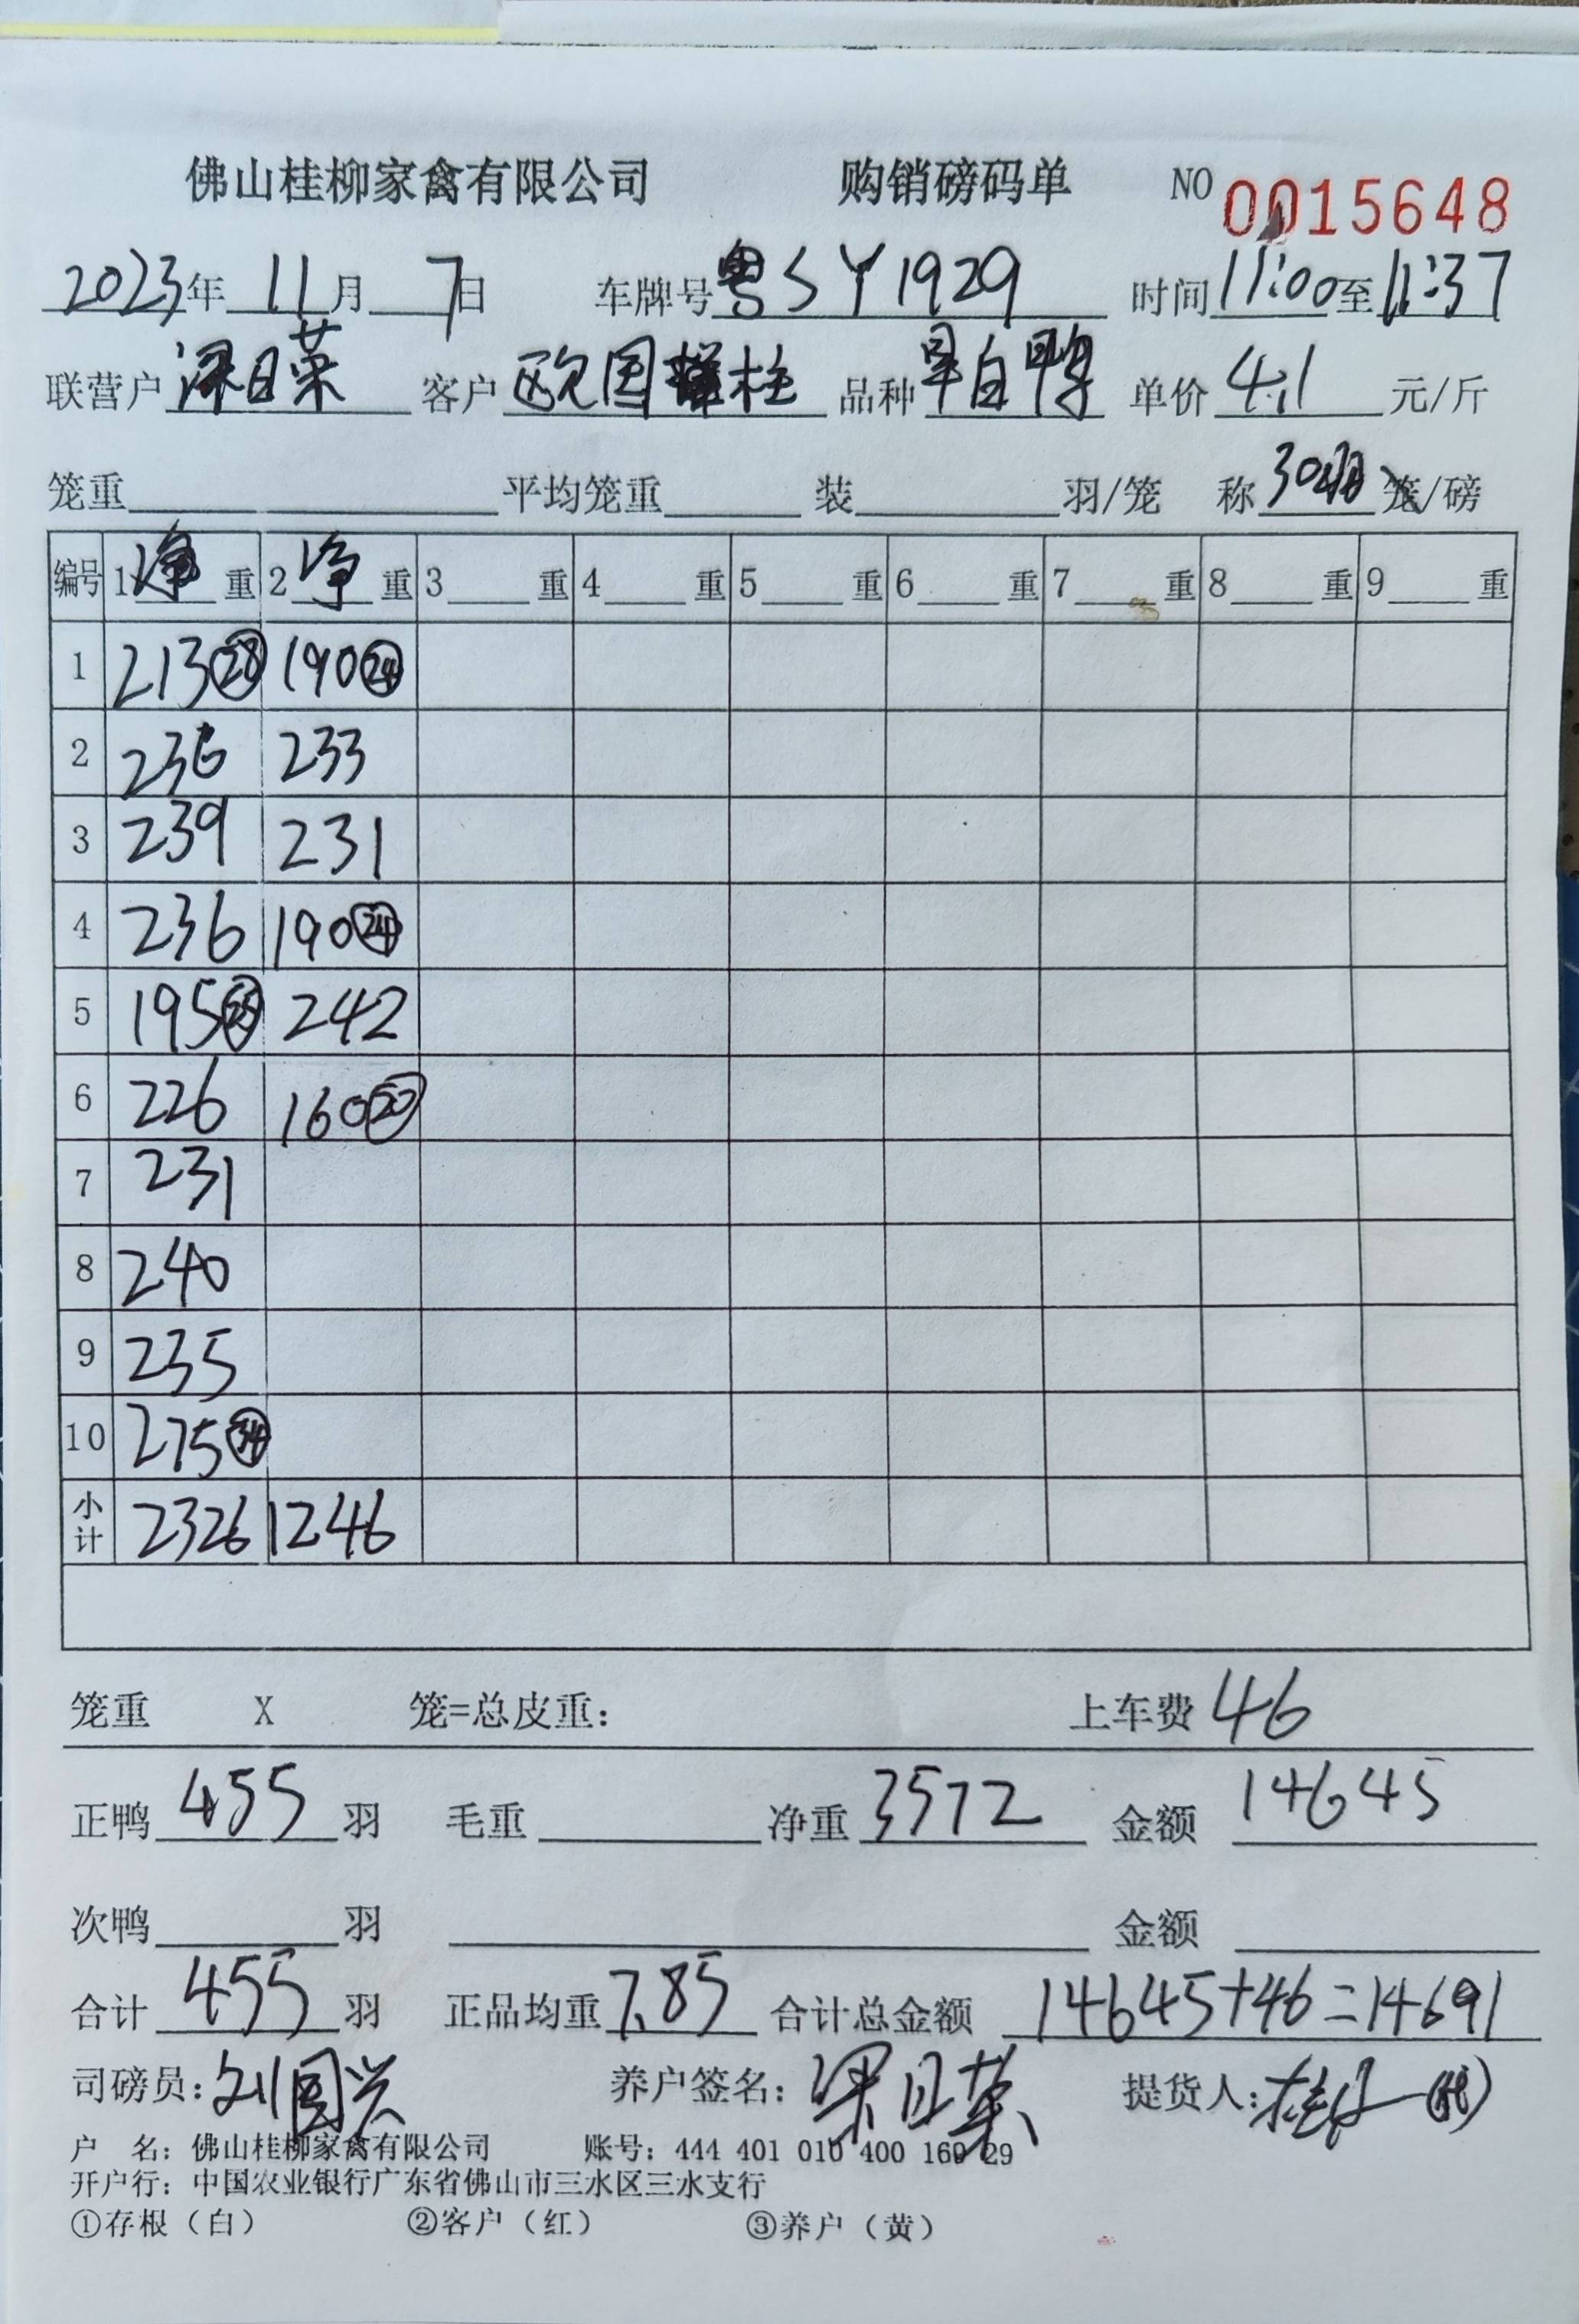 佛山桂柳家禽有限公司 购销磅码单 NO 0015648
2023年 11月 7日 车牌号 粤SY1929 时间 11:00至11:37
联营户 梁日荣 客户 欧国柱 品种 旱白鸭 单价 4.1 元/斤
笼重 平均笼重 装 羽/笼 称 30羽 笼/磅
编号 1净重 2净重 3重 4重 5重 6重 7重 8重 9重
1 213㉘ 190㉔
2 236 233
3 239 231
4 236 190㉔
5 195㉕ 242
6 226 160⑳
7 231
8 240
9 235
10 275㉞
小计 2326 1246
笼重 X 笼=总皮重: 上车费 46
正鸭 455 羽 毛重 净重 3572 金额 14645
次鸭 羽 金额
合计 455 羽 正品均重 7.85 合计总金额 14645+46=14691
司磅员: 刘国兴 养户签名: 梁日荣 提货人:
户 名: 佛山桂柳家禽有限公司 账号: 444 401 010 400 160 29
开户行: 中国农业银行广东省佛山市三水区三水支行
①存根（白） ②客户（红） ③养户（黄）